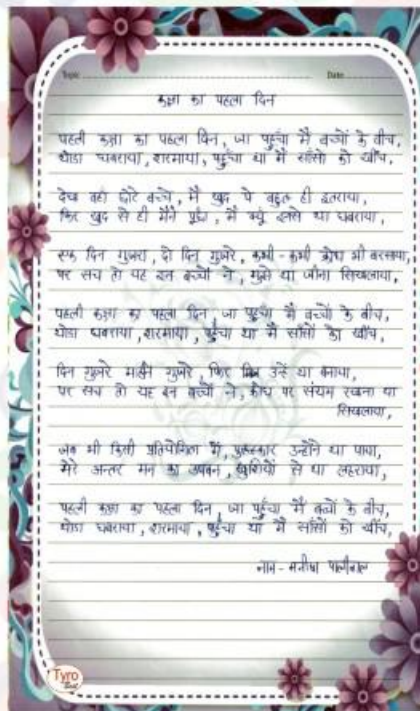 Topic Date
कक्षा का पहला दिन
पहली कक्षा का पहला दिन, जा पहुँचा मैं बच्चों के बीच,
थोडा घबराया, शरमाया, पहुँचा था मैं साँसों को खींच,
देखा वहाँ छोटे बच्चे, मैं खुद पे बहुत ही इतराया,
फिर खुद से ही मैंने पूछा, मैं क्यूं इनसे था घबराया,
एक दिन गुजरा, दो दिन गुजरे, कभी-कभी क्रोध भी बरसाया,
पर सच तो यह इन बच्चों ने, मुझे था जीना सिखलाया,
पहली कक्षा का पहला दिन, जा पहुँचा मैं बच्चों के बीच,
थोडा घबराया, शरमाया, पहुँचा था मैं साँसों को खींच,
दिन गुजरे महीने गुजरे, फिर उन्हें था बनाया,
पर सच तो यह इन बच्चों ने, क्रोध पर संयम रखना था
सिखलाया,
जब भी किसी प्रतियोगिता में, पुरूस्कार उन्होंने था पाया,
मेरे अन्तर मन का उपवन, खुशियों से था लहराया,
पहली कक्षा का पहला दिन, जा पहुँचा मैं बच्चों के बीच,
थोडा घबराया, शरमाया, पहुँचा था मैं साँसों को खींच,
नाम - मनीषा पालीवाल
Tyro